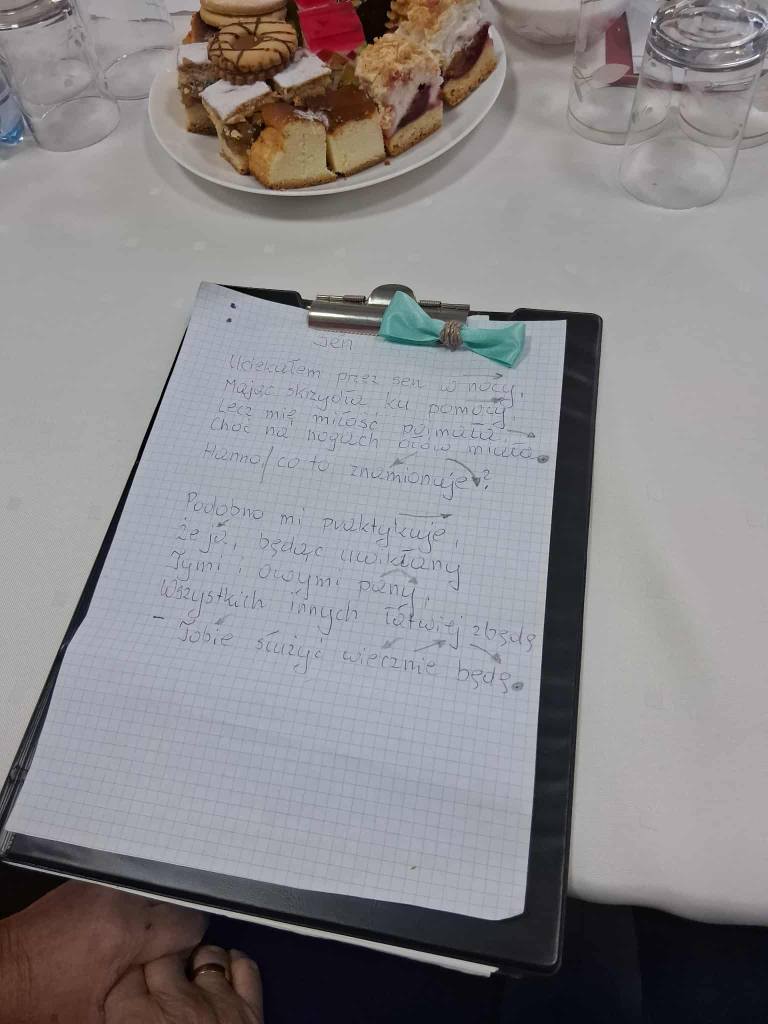 Sen
Uciekałem przez sen w nocy,
Mając skrzydła ku pomocy,
Lecz mię miłość poimała,
Choć na nogach ołów miała.
Hanno/co to znamionuje?
Podobno mi praktykuje,
Że ja, będąc uwikłany
Tymi i owymi pany,
Wszystkich innych łatwiej zbędę
- Tobie służyć wiecznie będę.